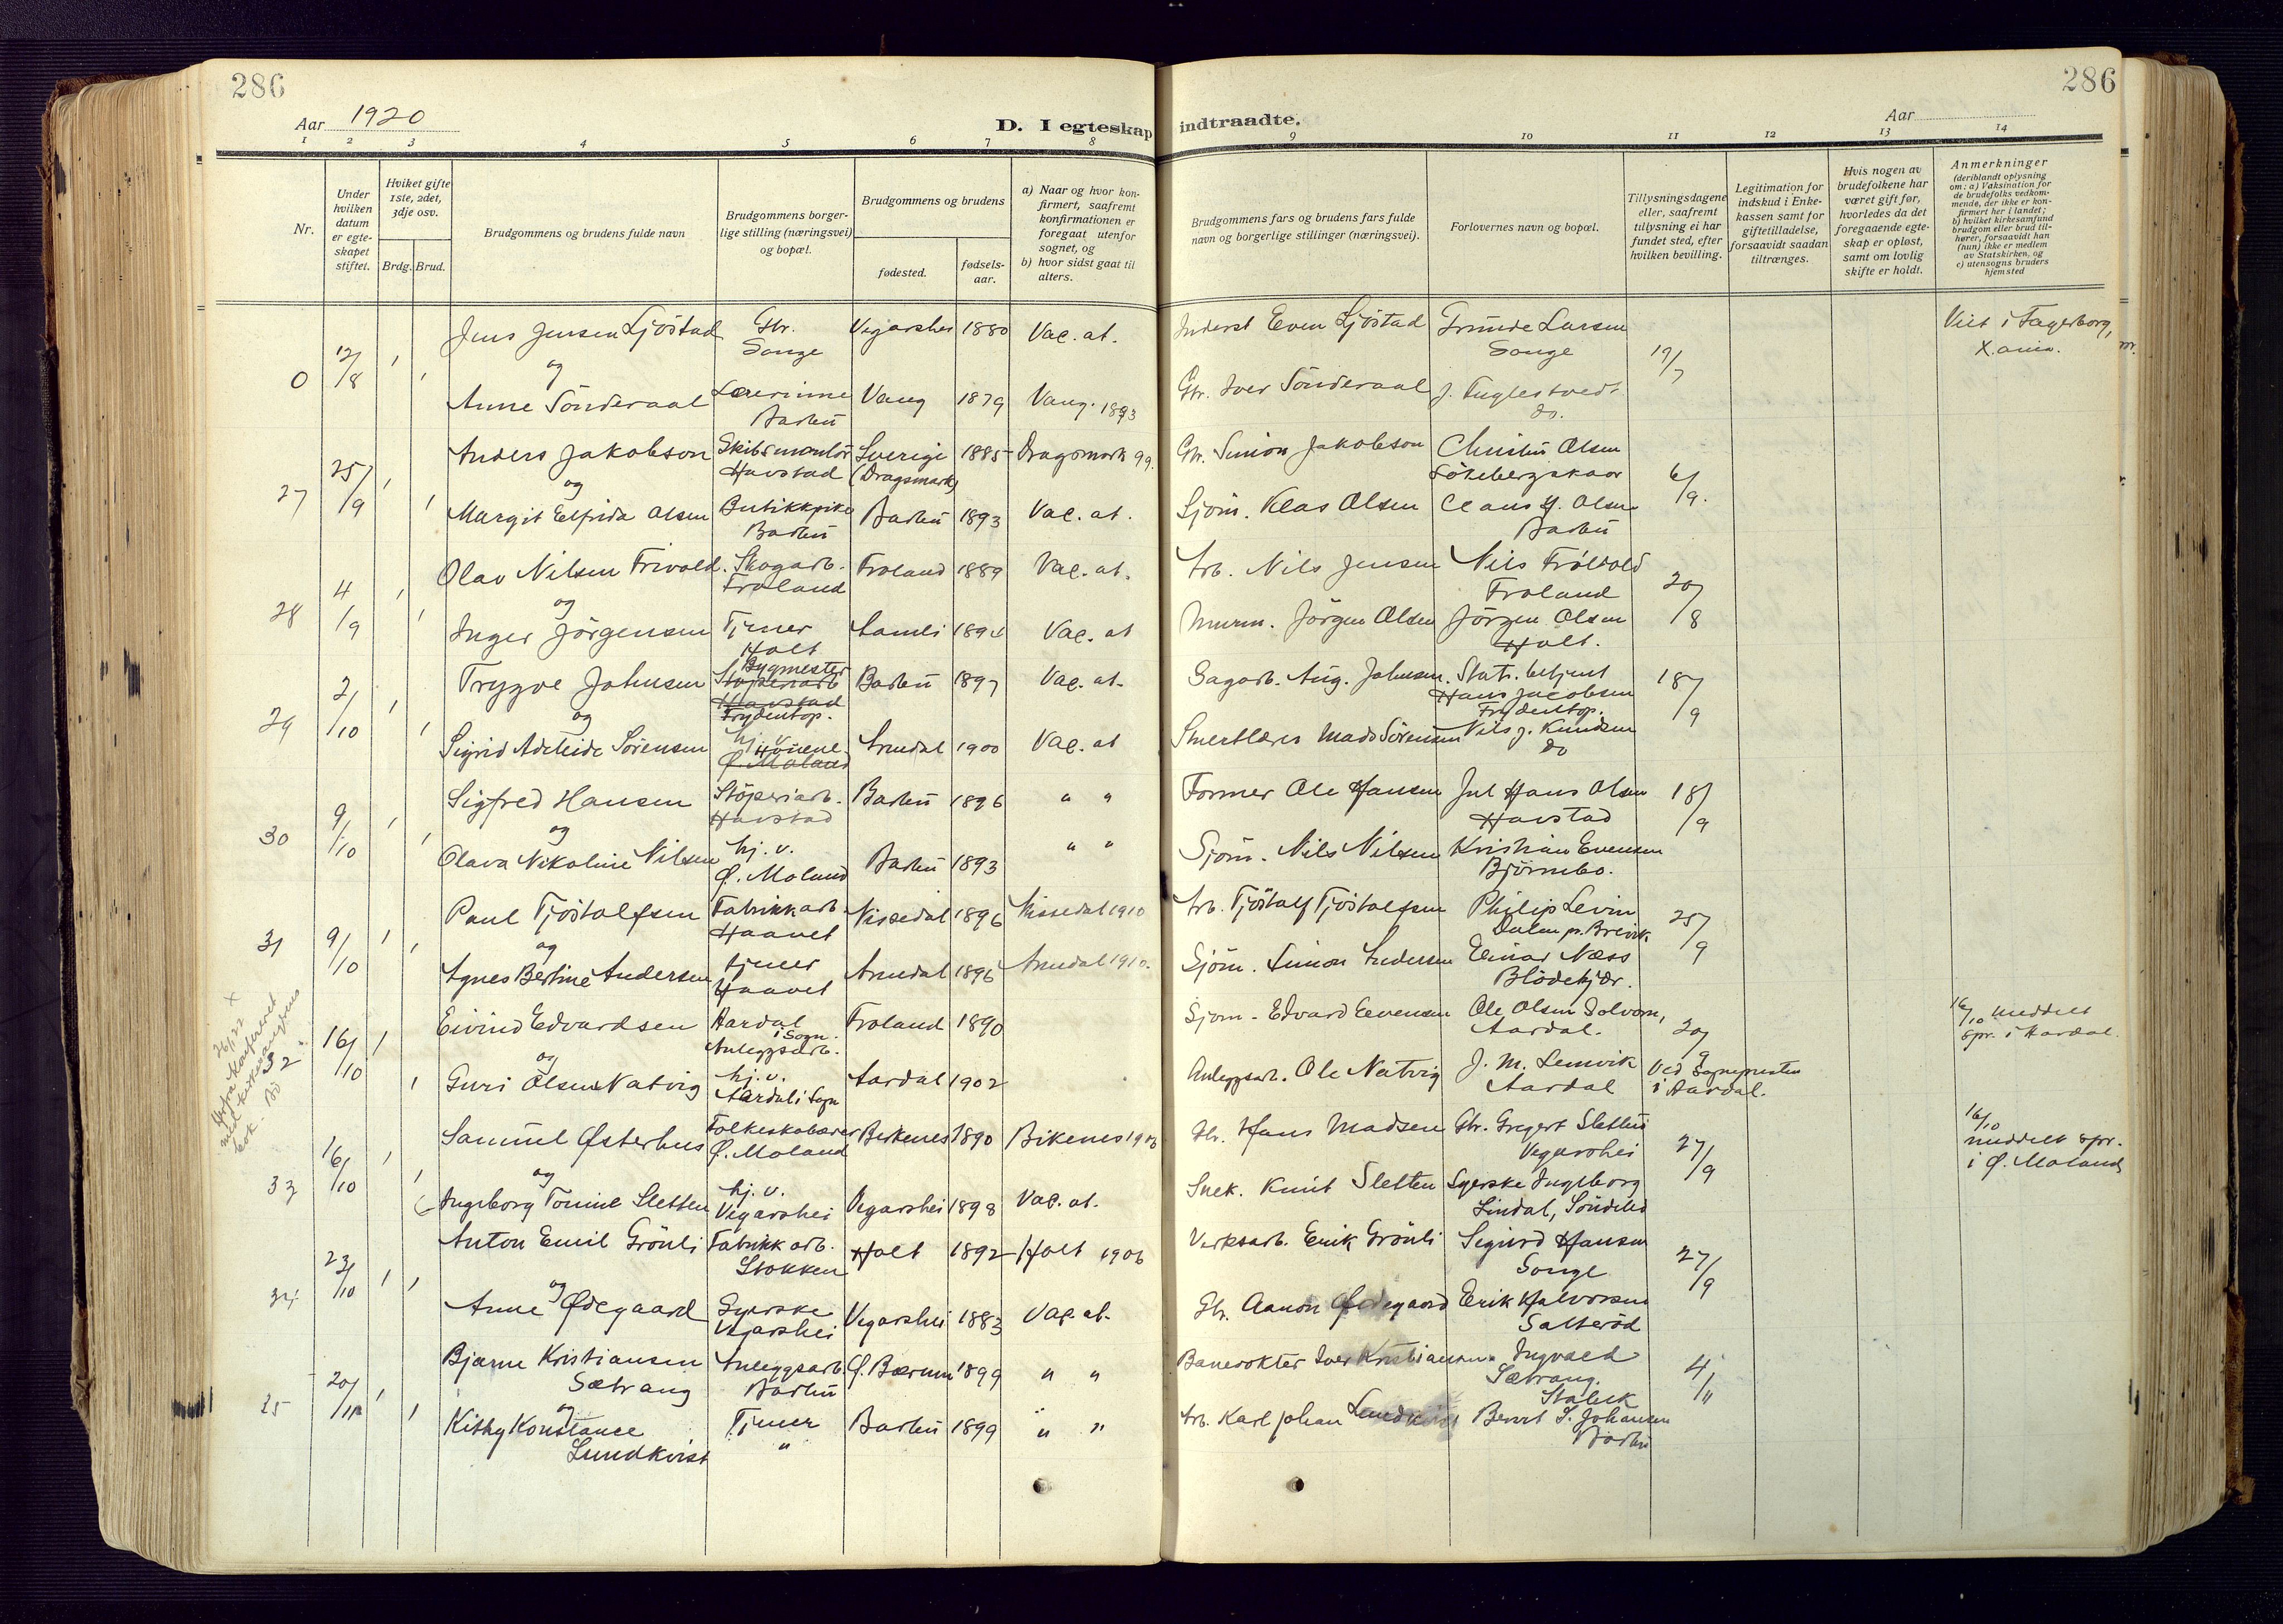 286
Aar 1920
D. I egteskap
1 2 3 4 5 6 7 8
Nr.
Under hvilken datum er egte-skapet stiftet.
Hvilket gifte 1ste, 2det, 3dje osv.
Brdg. Brud.
Brudgommens og brudens fulde navn
Brudgommens borger-lige stilling (næringsvei) og bopæl.
Brudgommens og brudens
fødested.
fødsels-aar.
a) Naar og hvor kon-firmert, saafremt konfirmationen er foregaat utenfor sognet, og
b) hvor sidst gaat til alters.
0 12/8 1 Jens Jensen Ljöstad Gbr. Songe Vegarshei 1880 Vac. at.
og
1 Anne Sönderaal Lærerinne Barbu Vang 1879 Vang. 1893
27 25/9 1 Anders Jakobson Skibsmontör Havstad Sverige (Dragsmark) 1885 Dragsmark 99.
og
1 Margit Elfrida Olsen Butikkpike Barbu Barbu 1893 Vac. at.
28 4/9 1 Olav Nilsen Frivold. Skogarb. Froland Froland 1889 Vac. at.
og
1 Inger Jörgensen Tjener Holt Aamli 1894 Vac. at
29 2/10 1 Trygve Johnsen Bygmester Støperiarb Havstad Frydentop. Barbu 1897 Vac. at.
og
1 Sigrid Adeleide Sørensen hj. v. Ø. Moland Arendal 1900 Vac. at
30 9/10 1 Sigfred Hansen Stöperiarb. Havstad Barbu 1896 " "
og
1 Olava Nikoline Nilsen hj. v. Ø. Moland Barbu 1893 " "
31 9/10 1 Paul Tjöstolfsen Fabrikkarb. Haavet Nissedal 1896 Nissedal 1910
og
1 Agnes Bertine Andersen tjener Haavet Arendal 1896 Arendal 1910.
32 16/10 1 Eivind Edvardsen Aardal i Sogn. Anleggsarb. Froland 1890
og
1 Guri Olsen Natvig hj. v. Aardal i Sogn Aardal 1902
33 16/10 1 Samuel Østerhus Folkeskolelærer Ø. Moland Birkenes 1890 Birkenes
og
1 Ingeborg Tomine Sletten hj. v. Vegarshei Vegarshei 1898 Vac. at.
34 23/10 1 Anton Emil Grönli Fabrikkarb. Stokken Holt 1892 Holt 1906
og
1 Anne Ødegaard Syerske Vegarshei Vegarshei 1883 Vac. at.
25 20/11 1 Bjarne Kristiansen Sætrang Anleggsarb. Barbu Ø. Bærum 1899 " "
og
1 Kitty Konstance Lundkvist Tjener " Barbu 1899 " "
286
indtraadte.
Aar
9 10 11 12 13 14
Brudgommens fars og brudens fars fulde navn og borgerlige stillinger (næringsvei).
Forlovernes navn og bopæl.
Tillysningsdagene eller, saafremt tillysning ei har fundet sted, efter hvilken bevilling.
Legitimation for indskud i Enke-kassen samt for giftetilladelse, forsaavidt saadan tiltrænges.
Hvis nogen av brudefolkene har været gift før, hvorledes da det foregaaende egte-skap er opløst, samt om lovlig skifte er holdt.
Anmerkninger (deriblandt oplysning om: a) Vaksination for de brudefolks vedkom-mende, der ikke er kon-firmert her i landet; b) hvilket kirkesamfund brudgom eller brud til-hører, forsaavidt han (hun) ikke er medlem av Statskirken, og c) utensogns bruders hjemsted
Inderst Even Ljöstad Songe 19/7 Viet i Fagerborg, X.ania.
Gbr. Iver Sönderaal J. Fuglestvedt do.
Gbr. Simon Jakobson Olsen 6/9.
Sjöm. Klas Olsen Claus Olsen Barbu
Arb. Nils Jensen Nils Frölvold Froland 20/8
Murm. Jörgen Olsen Jörgen Olsen Holt.
Sagarb. Aug. Johnsen. Stats. betjent Hans Jacobsen Frydentop. 18/9
Mads Sörensen Nils J. Knudsen do
Former Ole Hansen Jul Hans Olsen Havstad 18/9
Sjöm. Nils Nilsen Kristian Evensen Björnebo.
Arb. Tjöstolf Tjöstolfsen Philip Levin Dalen pr. Brevik 25/9
Sjöm. Simon Andersen Einar Næss Blödekjær.
Sjöm. Edvard Evensen Ole Olsen Aardal. 20/9 16/10 meddelt opr. i Aardal.
Anleggsarb. Ole Natvig J. M. Lemvik Aardal Ved Sognepresten i Aardal.
Gbr. Hans Madsen Gbr. Gregert Slettin Vegarshei 27/9 16/10 meddelt opr. i Ø. Moland
Snek. Knut Sletten Syerske Ingeborg Lindal, Söndeled
Verksarb. Erik Grönli Sigurd Hansen Songe 27/9
Gbr. Aanon Ødegaard Erik Halvorsen Salteröd
Banevokter Iver Kristiansen Ingvald Sætrang. Stabek 4/11
Arb. Karl Johan Lundkvist Johansen Barbu